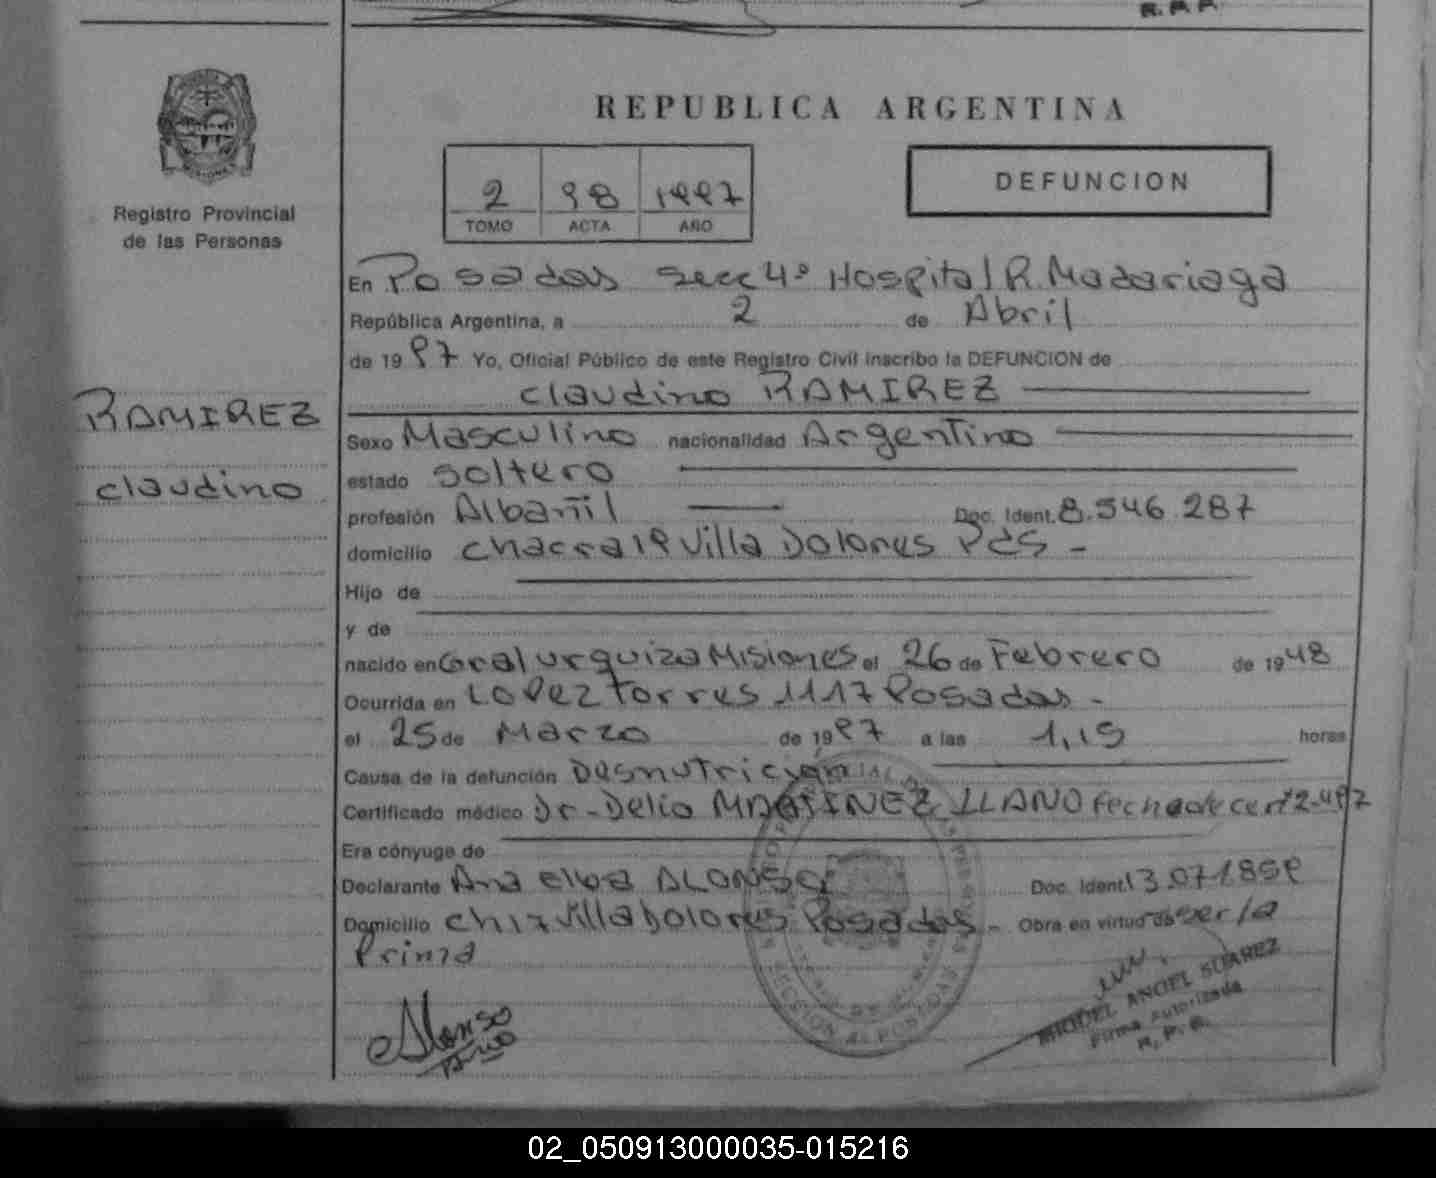 R. P. P.
REPUBLICA ARGENTINA
2 98 1997
TOMO ACTA AÑO
DEFUNCION
Registro Provincial
de las Personas
En Posadas Secc 4º Hospital R. Madariaga
República Argentina, a 2 de Abril
de 1997 Yo, Oficial Público de este Registro Civil inscribo la DEFUNCION de
claudino RAMIREZ
RAMIREZ
claudino
Sexo Masculino nacionalidad Argentino
estado Soltero
profesión Albañil Doc. Ident. 8.546.287
domicilio chacra 19 Villa Dolores Pds -
Hijo de
y de
nacido en Gral urquiza Misiones el 26 de Febrero de 1948
Ocurrida en Lopez torres 1117 Posadas -
el 25 de Marzo de 1997 a las 1,15 horas
Causa de la defunción Desnutrición
Certificado médico Dr - Delio MARTINEZ LLANO fecha de cert 2-4-97
Era cónyuge de
Declarante Ana elba ALONSO Doc. Ident. 13.071.859
Domicilio ch 17 Villa Dolores Posadas - Obra en virtud de ser la
Prima
Alonso
MIGUEL ANGEL SUAREZ
Firma Autorizada
R. P. P.
02_050913000035-015216